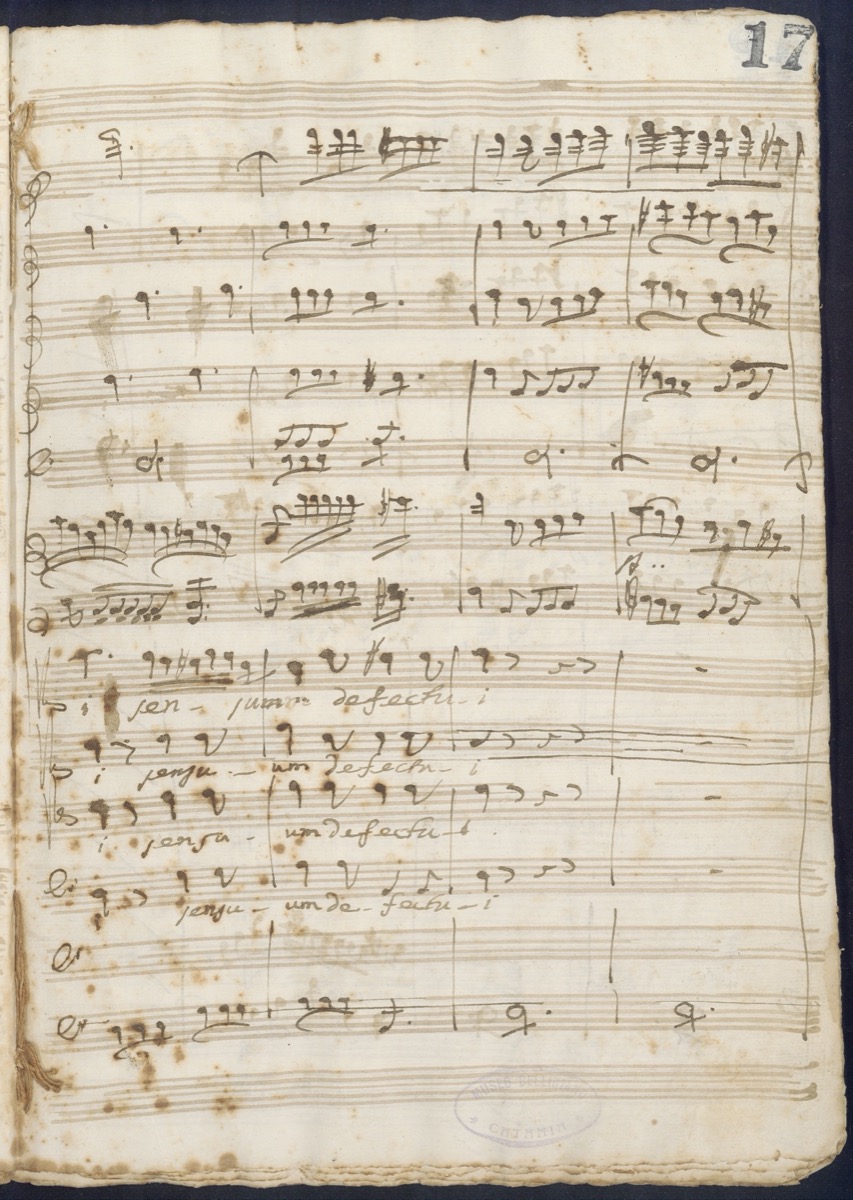 17
i sen - sumn defectu - i
i sensu - um defectu - i
i sensu - um defectu - i
sensu - um de - fectu - i
MUSEO BELLINIANO
CATANIA